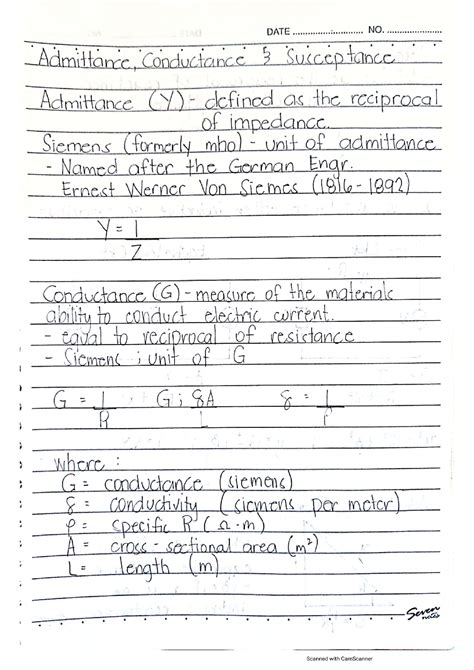 DATE .......................... NO. ....................
Admittance, Conductance & Susceptance
Admittance (Y) - defined as the reciprocal
of impedance
Siemens (formerly mho) - unit of admittance
- Named after the German Engr.
Ernest Werner Von Siemes (1816 - 1892)
Y = 1
Z
Conductance (G) - measure of the materials
ability to conduct electric current.
- equal to reciprocal of resistance
- Siemens ; unit of G
G = 1 G ; 8A 8 = 1
R L r
where :
G = conductance (siemens)
8 = conductivity (siemens per meter)
ρ = specific R (Ω-m)
A = cross-sectional area (m²)
L = length (m)
Seven
notes
Scanned with CamScanner